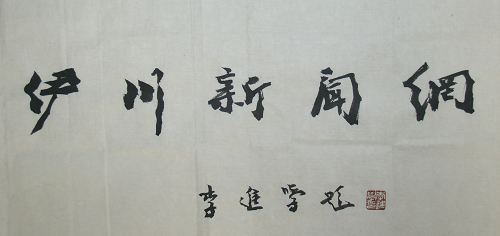 伊川新闻網
李進學題